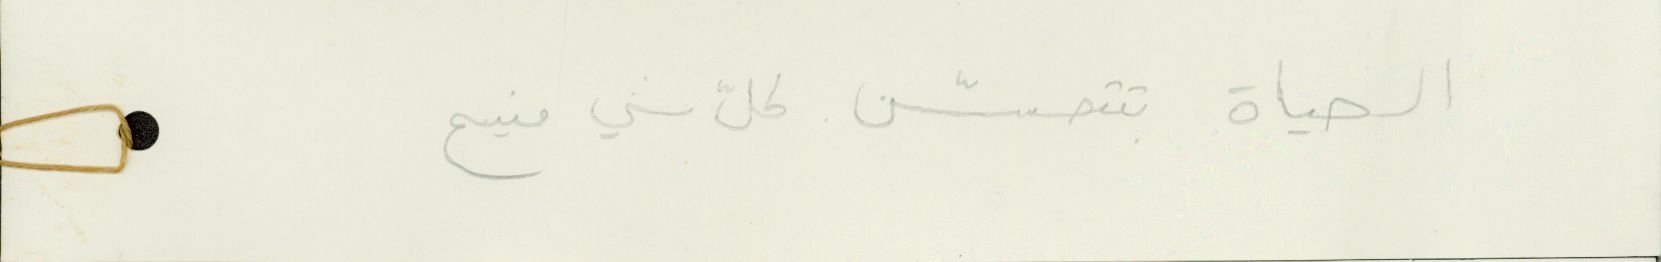 الحياة بتتحسّن كلّ شي منيح